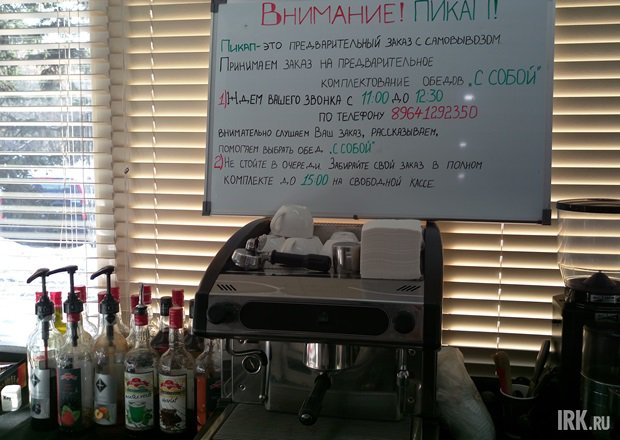 ВНИМАНИЕ! ПИКАП!
ПИКАП- ЭТО ПРЕДВАРИТЕЛЬНЫЙ ЗАКАЗ С САМОВЫВОЗОМ.
ПРИНИМАЕМ ЗАКАЗ НА ПРЕДВАРИТЕЛЬНОЕ
КОМПЛЕКТОВАНИЕ ОБЕДОВ „С СОБОЙ"
1) ЖДЕМ ВАШЕГО ЗВОНКА С 11:00 ДО 12:30
ПО ТЕЛЕФОНУ 89641292350
ВНИМАТЕЛЬНО СЛУШАЕМ ВАШ ЗАКАЗ, РАССКАЗЫВАЕМ,
ПОМОГАЕМ ВЫБРАТЬ ОБЕД „С СОБОЙ"
2) НЕ СТОЙТЕ В ОЧЕРЕДИ. ЗАБИРАЙТЕ СВОЙ ЗАКАЗ В ПОЛНОМ
КОМПЛЕКТЕ ДО 15:00 НА СВОБОДНОЙ КАССЕ.
IRK.RU